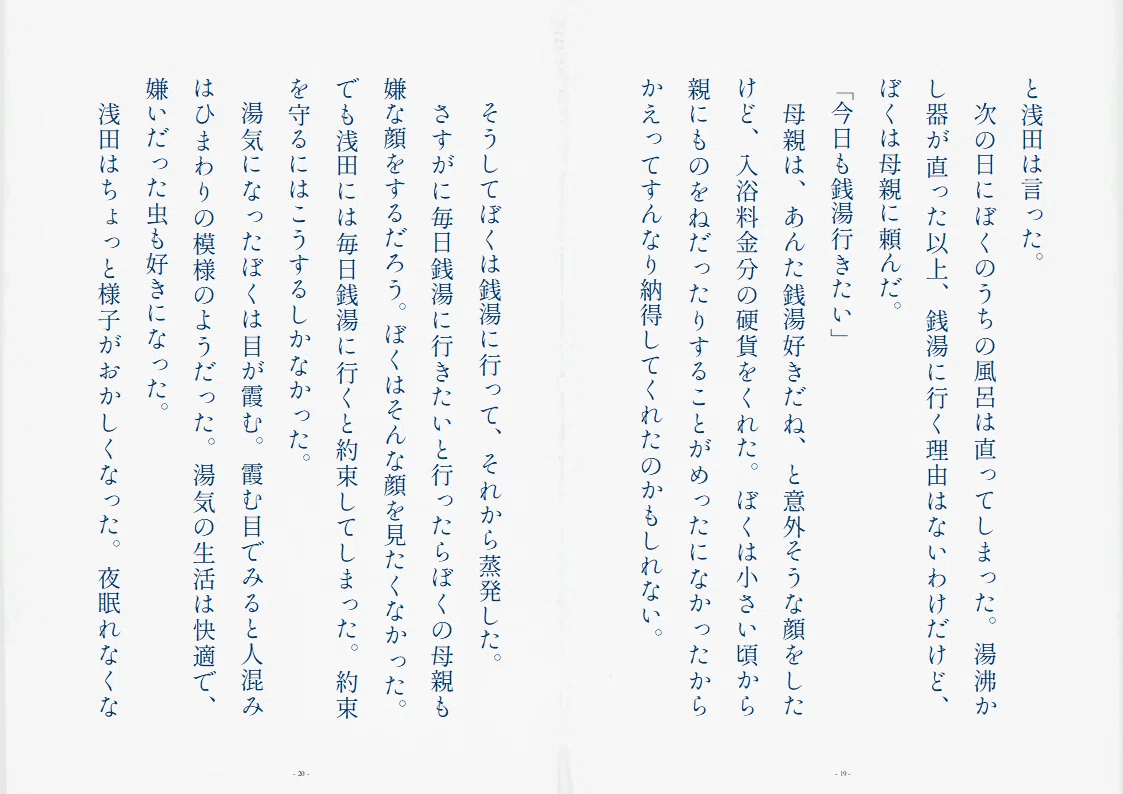 と浅田は言った。
次の日にぼくのうちの風呂は直ってしまった。湯沸か
し器が直った以上、銭湯に行く理由はないわけだけど、
ぼくは母親に頼んだ。
「今日も銭湯行きたい」
母親は、あんた銭湯好きだね、と意外そうな顔をした
けど、入浴料金分の硬貨をくれた。ぼくは小さい頃から
親にものをねだったりすることがめったになかったから
かえってすんなり納得してくれたのかもしれない。
- 19 -
そうしてぼくは銭湯に行って、それから蒸発した。
さすがに毎日銭湯に行きたいと行ったらぼくの母親も
嫌な顔をするだろう。ぼくはそんな顔を見たくなかった。
でも浅田には毎日銭湯に行くと約束してしまった。約束
を守るにはこうするしかなかった。
湯気になったぼくは目が霞む。霞む目でみると人混み
はひまわりの模様のようだった。湯気の生活は快適で、
嫌いだった虫も好きになった。
浅田はちょっと様子がおかしくなった。夜眠れなくな
- 20 -